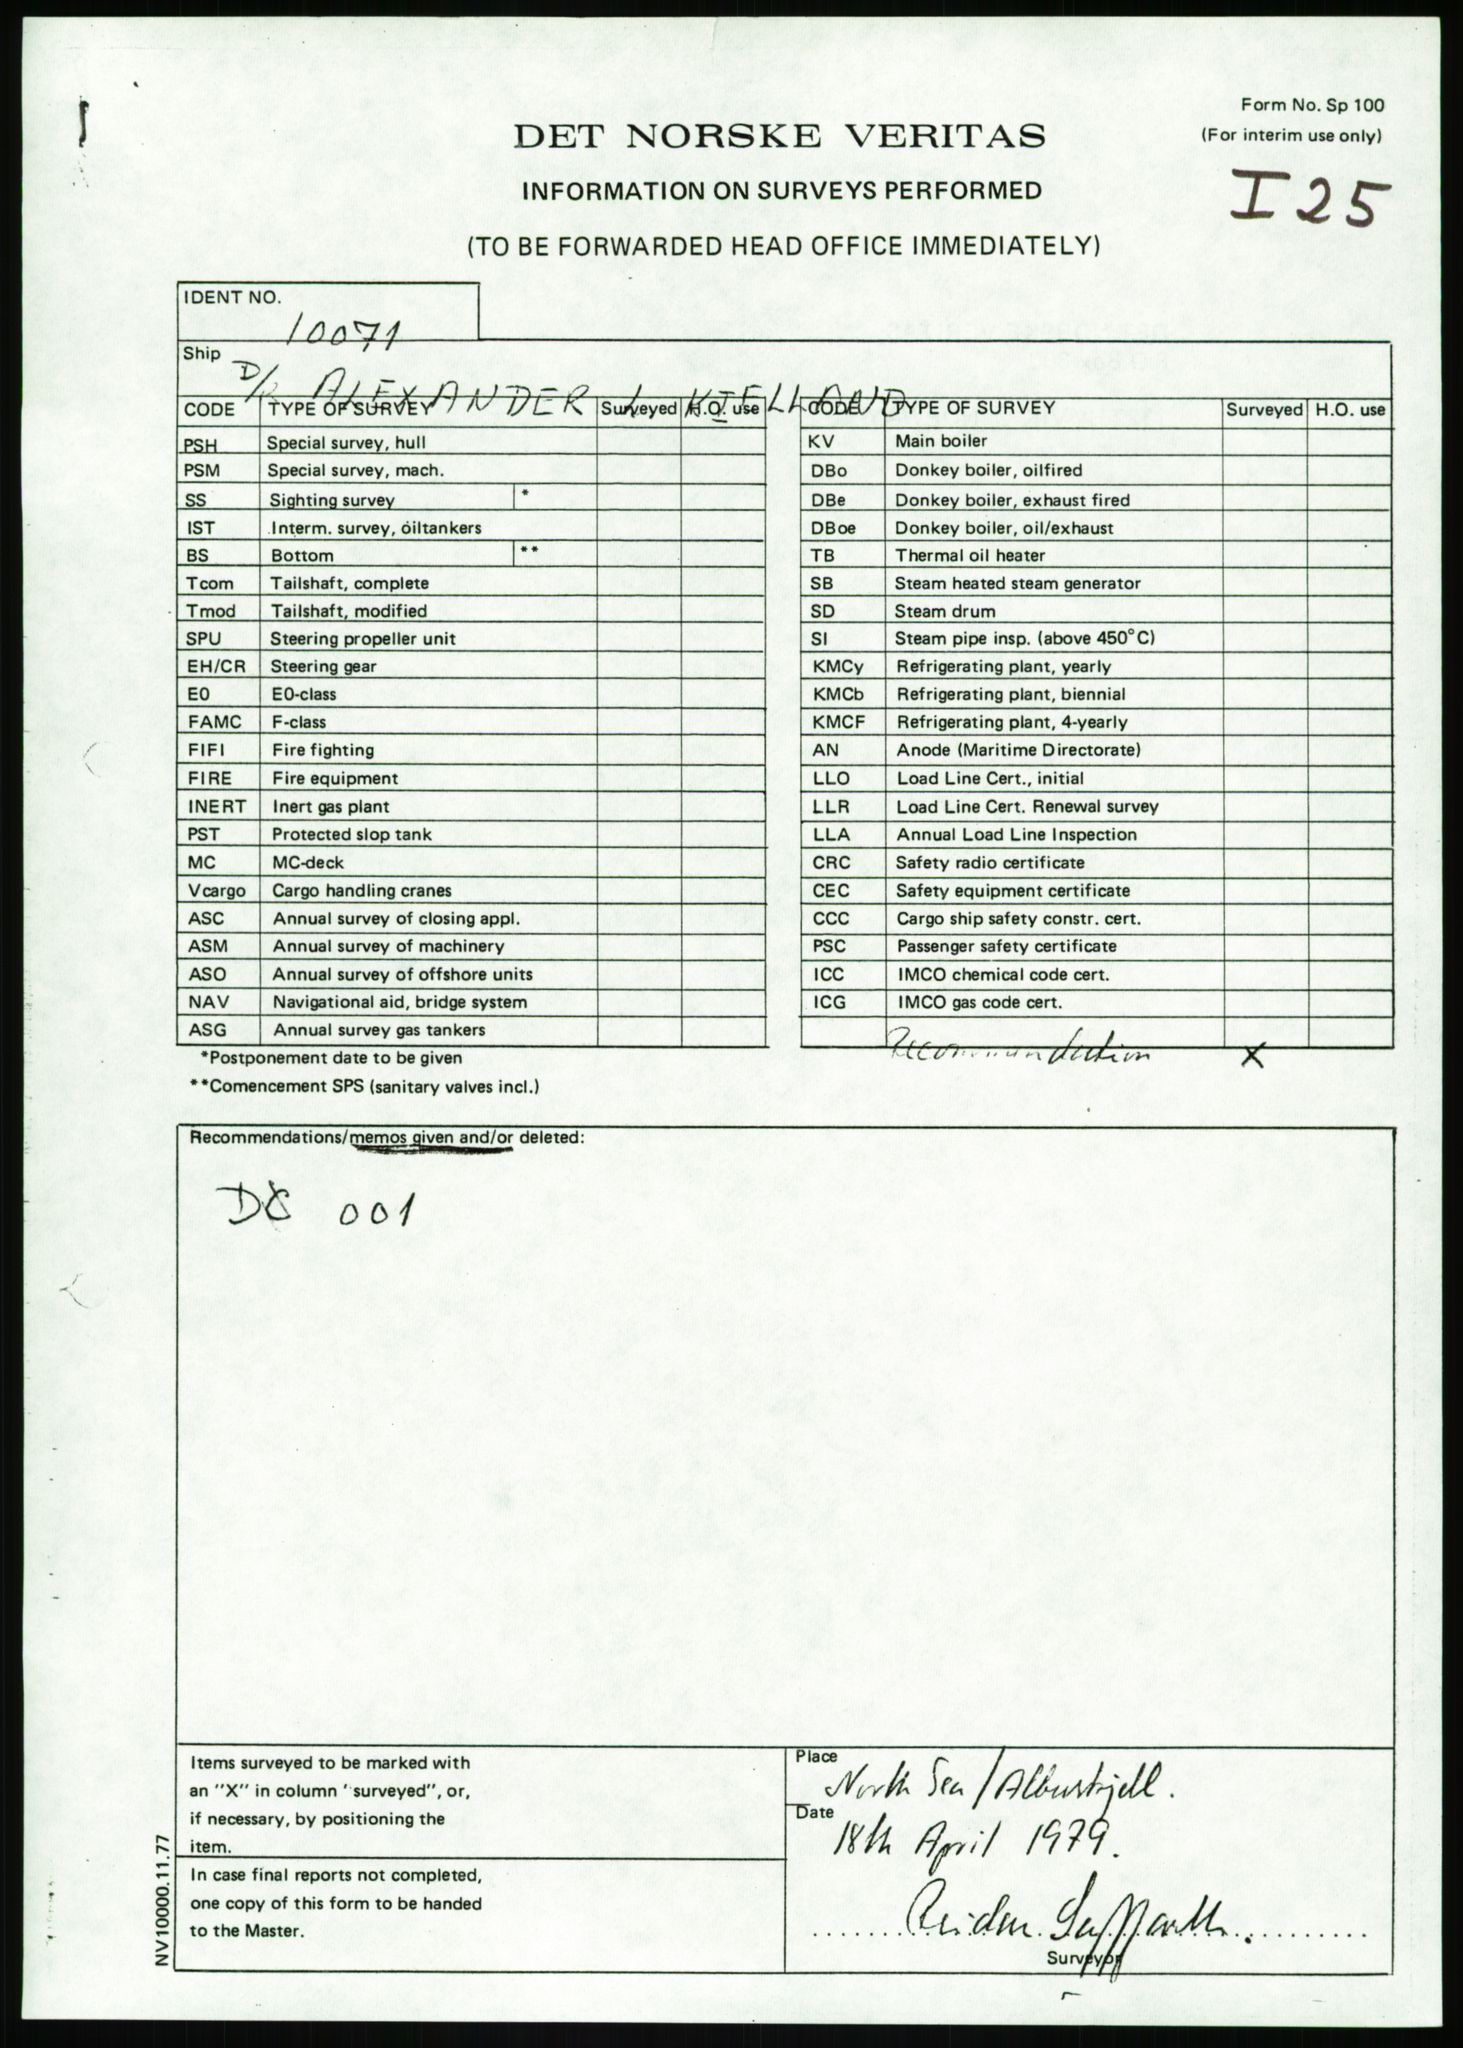 Form No. Sp 100
DET NORSKE VERITAS
(For interim use only)
INFORMATION ON SURVEYS PERFORMED
I 25
(TO BE FORWARDED HEAD OFFICE IMMEDIATELY)
IDENT NO.
10071
Ship
D/R ALEXANDER L. KIELLAND
CODE TYPE OF SURVEY Surveyed H.O. use
PSH Special survey, hull
PSM Special survey, mach.
SS Sighting survey *
IST Interm. survey, oiltankers
BS Bottom **
Tcom Tailshaft, complete
Tmod Tailshaft, modified
SPU Steering propeller unit
EH/CR Steering gear
E0 E0-class
FAMC F-class
FIFI Fire fighting
FIRE Fire equipment
INERT Inert gas plant
PST Protected slop tank
MC MC-deck
Vcargo Cargo handling cranes
ASC Annual survey of closing appl.
ASM Annual survey of machinery
ASO Annual survey of offshore units
NAV Navigational aid, bridge system
ASG Annual survey gas tankers
*Postponement date to be given
**Comencement SPS (sanitary valves incl.)
CODE TYPE OF SURVEY Surveyed H.O. use
KV Main boiler
DBo Donkey boiler, oilfired
DBe Donkey boiler, exhaust fired
DBoe Donkey boiler, oil/exhaust
TB Thermal oil heater
SB Steam heated steam generator
SD Steam drum
SI Steam pipe insp. (above 450°C)
KMCy Refrigerating plant, yearly
KMCb Refrigerating plant, biennial
KMCF Refrigerating plant, 4-yearly
AN Anode (Maritime Directorate)
LLO Load Line Cert., initial
LLR Load Line Cert. Renewal survey
LLA Annual Load Line Inspection
CRC Safety radio certificate
CEC Safety equipment certificate
CCC Cargo ship safety constr. cert.
PSC Passenger safety certificate
ICC IMCO chemical code cert.
ICG IMCO gas code cert.
Recommendation X
Recommendations/memos given and/or deleted:
001
Items surveyed to be marked with
an "X" in column "surveyed", or,
if necessary, by positioning the
item.
In case final reports not completed,
one copy of this form to be handed
to the Master.
Place
North Sea / Albuskjell.
Date
18th April 1979.
Reidar
Surveyor
NV10000.11.77